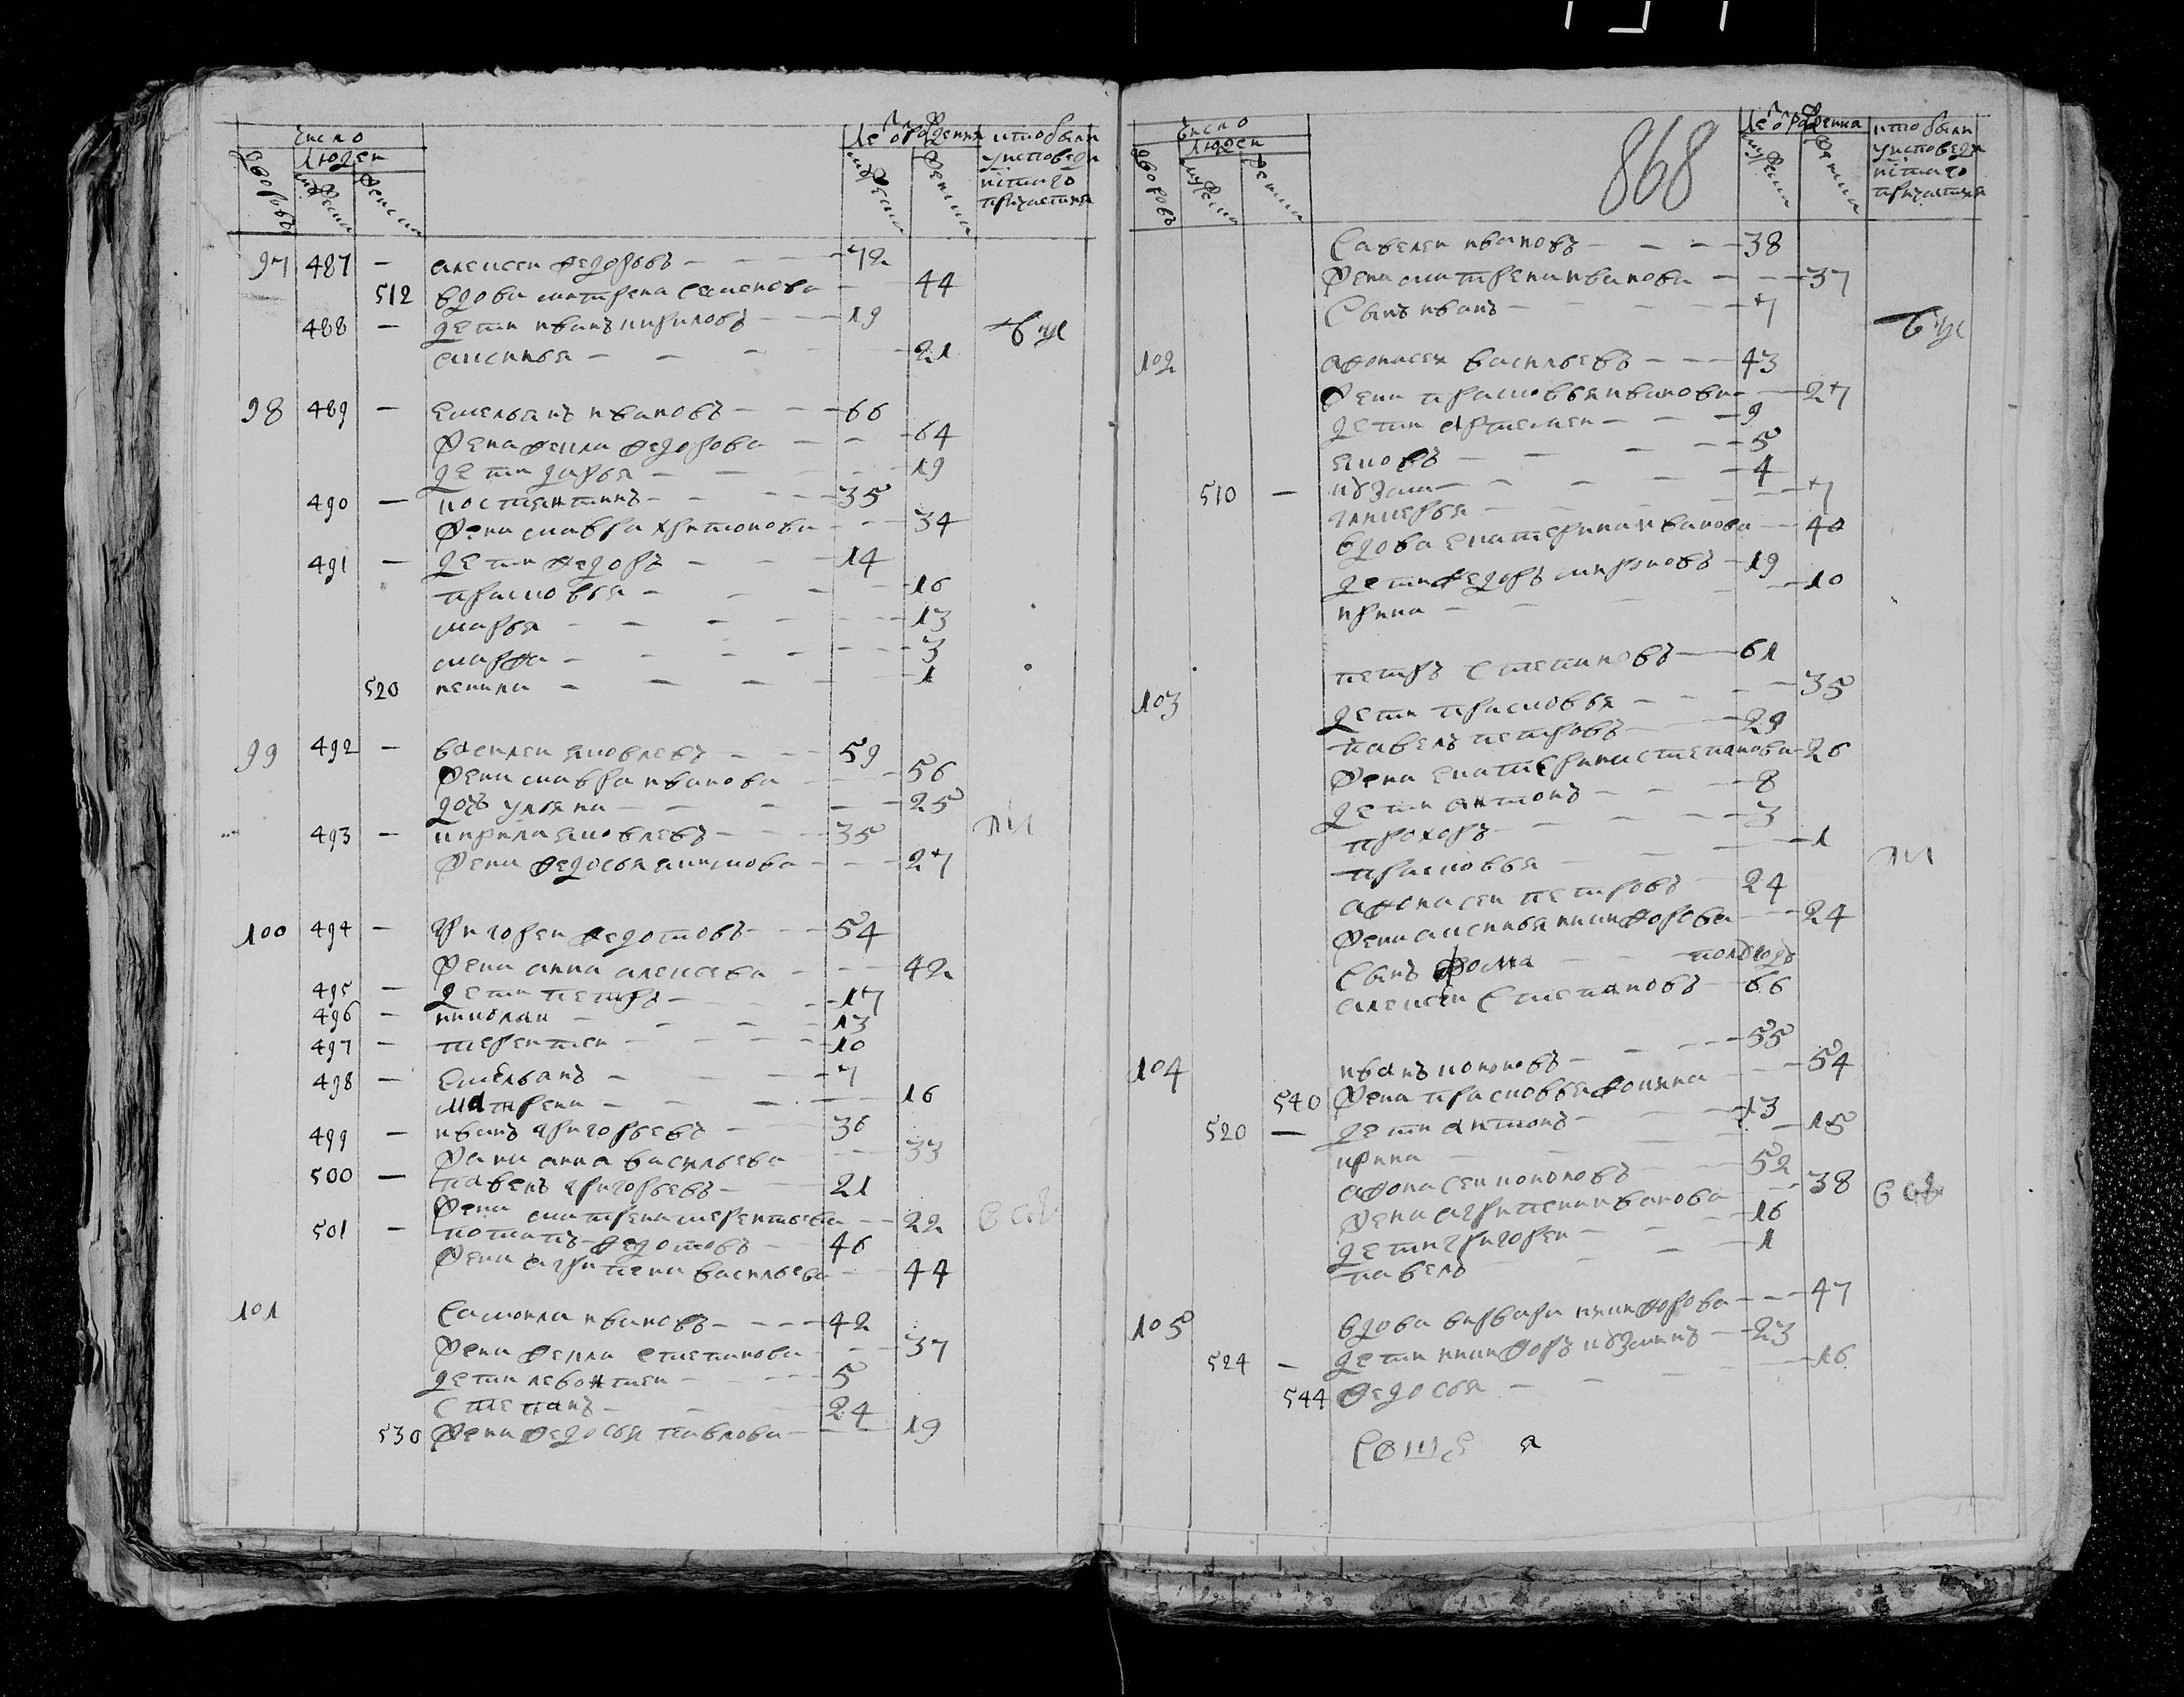 число
людей
дворовъ
мужеска
женска
лѣ от рождения
мужеска
женска
кто были
у исповеди
и стаго
причастия
97 487 — алексеи федоровъ 72
512 вдова матрена семенова 44
488 — дети иванъ кириловъ 19
аксинья 21
буд
98 489 — емельянъ ивановъ 66
жена фекла федорова 64
дети дарья 19
490 — костянтинъ 35
жена мавра харитонова 34
491 — дети федоръ 14
прасковья 16
марья 13
марфа 3
520 1
99 492 — василеи яковлевъ 59
жена мавра иванова 56
дочь ульяна 25
493 — кирила яковлевъ 35
жена федосья акимова 27
100 494 — григореи федотовъ 54
жена анна алексева 42
495 — дети петръ 17
496 — николаи 13
497 — терентеи 10
498 — емельанъ 7
матрена 16
499 — иванъ григорьевъ 36
жена анна васильева 33
500 — павелъ григорьевъ 21
жена матрена терентьева 22
501 — потапъ федотовъ 46
жена агрипена васильева 44
101 самоила ивановъ 42
жена фекла степанова 37
дети левонтеи 5
степанъ 24
530 жена федосья павлова 19
868
число
людей
дворовъ
мужеска
женска
лѣ от рождения
мужеска
женска
кто были
у исповеди
и стаго
причастия
савелеи ивановъ 38
жена матрена иванова 37
сынъ иванъ 7
буд
102 афонасеи васильевъ 43
жена прасковья иванова 27
дети артемеи 9
яковъ 5
510 — кузма 4
гликерья 7
вдова екатерина иванова 40
дети федоръ мироновъ 19
ирина 10
петръ степановъ 61
103 дети прасковья 35
павелъ петровъ 29
жена екатерина степанова 26
дети антонъ 8
прохоръ 3
прасковья 1
афонасеи петровъ 24
жена аксинья никифорова 24
сынъ фома полугодъ
алексеи степановъ 66
104 иванъ кононовъ 55
540 жена прасковья фокина 54
520 — дети антонъ 13
ирина 15
афонасеи кононовъ 52
жена агрипена иванова 38
дети григореи 16
павелъ 1
105 вдова варвара никифорова 47
524 — дети никифоръ кузминъ 23
544 федосья 16